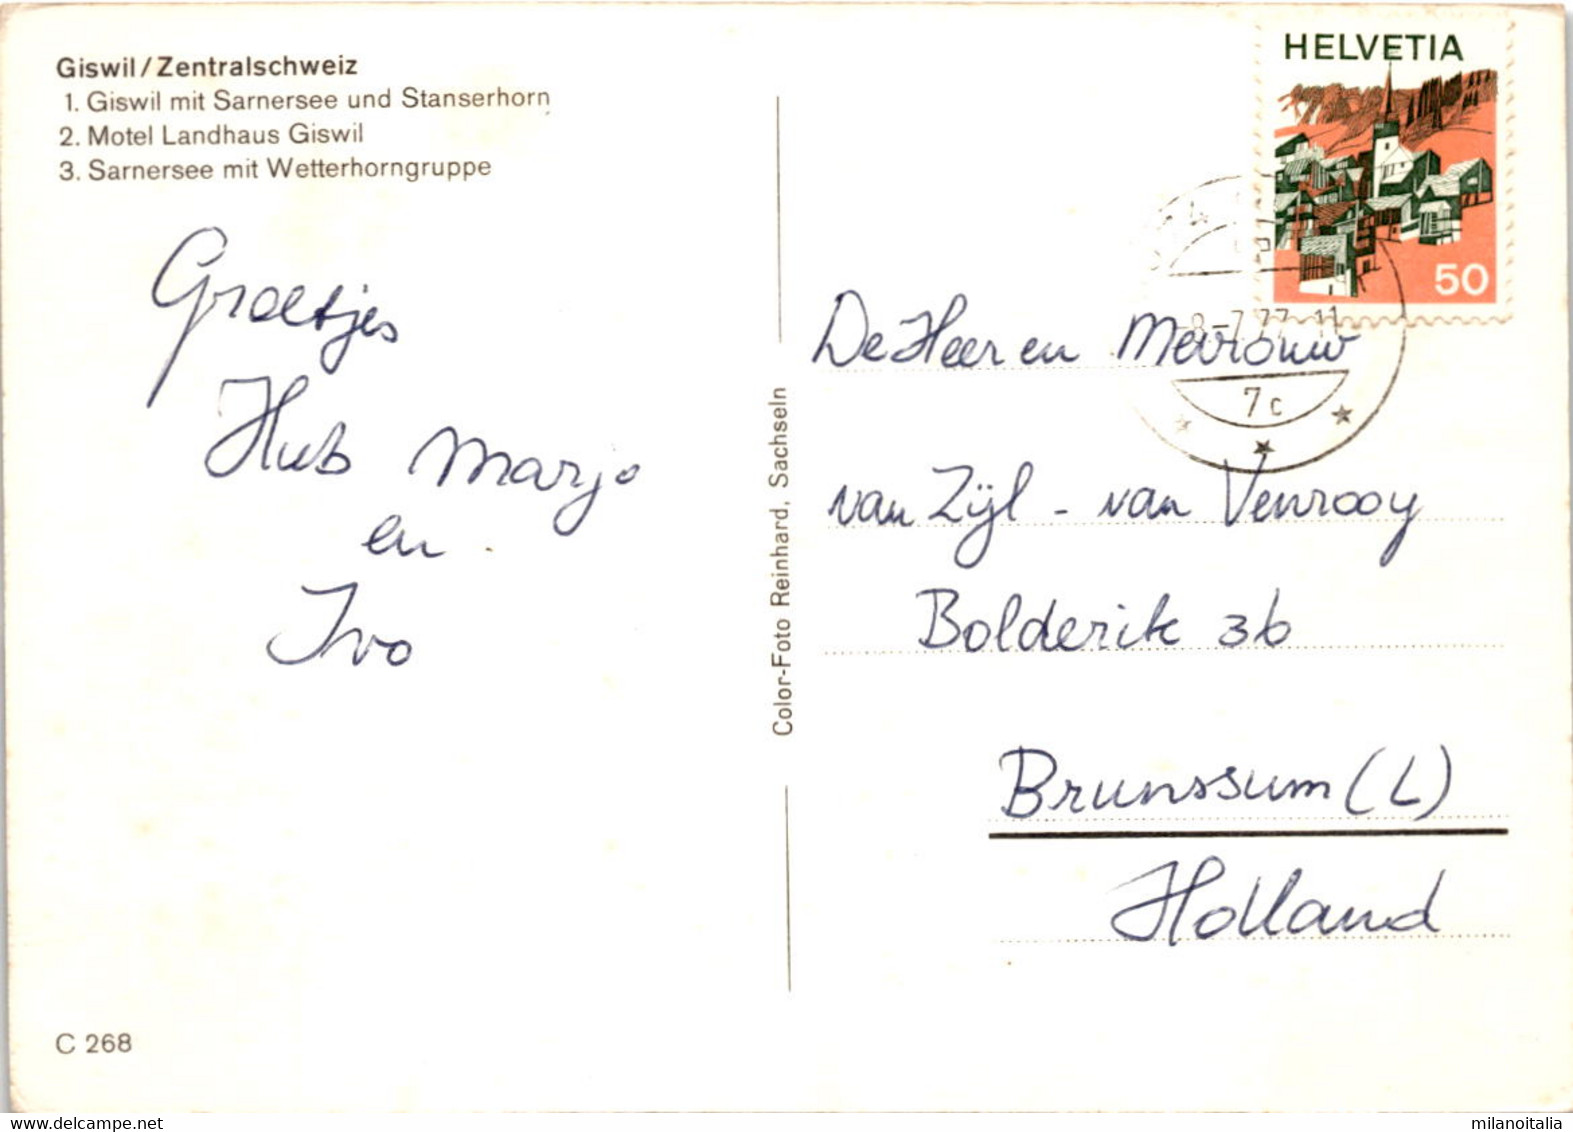 Giswil/Zentralschweiz
1. Giswil mit Sarnersee und Stanserhorn
2. Motel Landhaus Giswil
3. Sarnersee mit Wetterhorngruppe
Groetjes
Hub Marjo
en
Ivo
C 268
Color-Foto Reinhard, Sachseln
HELVETIA
50
-8.-7.77-11
7c
De Heer en Mevrouw
van Zijl - van Venrooy
Bolderik 36
Brunssum (L)
Holland
milanoitalia